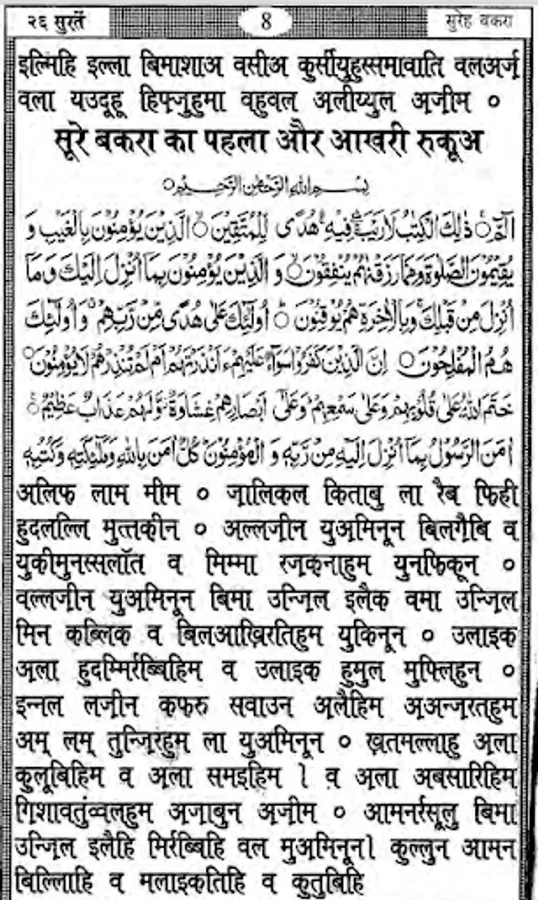 २६ सुरतें 8 सुरेह बकरा
इल्मिहि इल्ला बिमाशाअ वसीअ कुर्सीयुहुस्समावाति वलअर्ज़
वला यउदूहू हिफ्ज़ुहुमा वहुवल अलीय्युल अज़ीम ०
सूरे बकरा का पहला और आखरी रुकूअ
بِسْمِ اللهِ الرَّحْمٰنِ الرَّحِيْمِ ○
الٓمّٓ ○ ذٰلِكَ الْكِتٰبُ لَا رَيْبَ فِيْهِ هُدًى لِّلْمُتَّقِيْنَ ○ الَّذِيْنَ يُؤْمِنُوْنَ بِالْغَيْبِ وَ
يُقِيْمُوْنَ الصَّلٰوةَ وَمِمَّا رَزَقْنٰهُمْ يُنْفِقُوْنَ ○ وَ الَّذِيْنَ يُؤْمِنُوْنَ بِمَآ اُنْزِلَ اِلَيْكَ وَمَآ
اُنْزِلَ مِنْ قَبْلِكَ وَبِالْاٰخِرَةِ هُمْ يُوْقِنُوْنَ ○ اُولٰٓئِكَ عَلٰى هُدًى مِّنْ رَّبِّهِمْ وَ اُولٰٓئِكَ
هُمُ الْمُفْلِحُوْنَ ○ اِنَّ الَّذِيْنَ كَفَرُوْا سَوَآءٌ عَلَيْهِمْ ءَاَنْذَرْتَهُمْ اَمْ لَمْ تُنْذِرْهُمْ لَا يُؤْمِنُوْنَ ○
خَتَمَ اللهُ عَلٰى قُلُوْبِهِمْ وَعَلٰى سَمْعِهِمْ وَعَلٰٓى اَبْصَارِهِمْ غِشَاوَةٌ وَّلَهُمْ عَذَابٌ عَظِيْمٌ ○
اٰمَنَ الرَّسُوْلُ بِمَآ اُنْزِلَ اِلَيْهِ مِنْ رَّبِّهٖ وَ الْمُؤْمِنُوْنَ كُلٌّ اٰمَنَ بِاللهِ وَمَلٰٓئِكَتِهٖ وَكُتُبِهٖ
अलिफ़ लाम मीम ० ज़ालिकल किताबु ला रैब फ़िही
हुदलल्लि मुत्तक़ीन ० अल्लज़ीन युअमिनून बिलग़ैबि व
युक़ीमुनस्सलॉत व मिम्मा रज़क़नाहुम युनफ़िक़ून ०
वल्लज़ीन युअमिनून बिमा उन्ज़िल इलैक वमा उन्ज़िल
मिन क़ब्लिक व बिलआख़िरतिहुम युकिनून ० उलाइक
अ़ला हुदम्मिर्रब्बिहिम व उलाइक हुमुल मुफ्लिहुन ०
इन्नल लज़ीन कफ़रु सवाउन अ़लैहिम अअन्ज़रतहुम
अम् लम् तुन्ज़िरहुम ला युअमिनून ० ख़तमल्लाहु अ़ला
कुलूबिहिम व अ़ला समइहिम । व अ़ला अबसारिहिम
ग़िशावतुंव्वलहुम अज़ाबुन अज़ीम ० आमनर्रसूलु बिमा
उन्ज़िल इलैहि मिर्रब्बिहि वल मुअमिनून। कुल्लुन आमन
बिल्लिाहि व मलाइकतिहि व कुतुबिहि